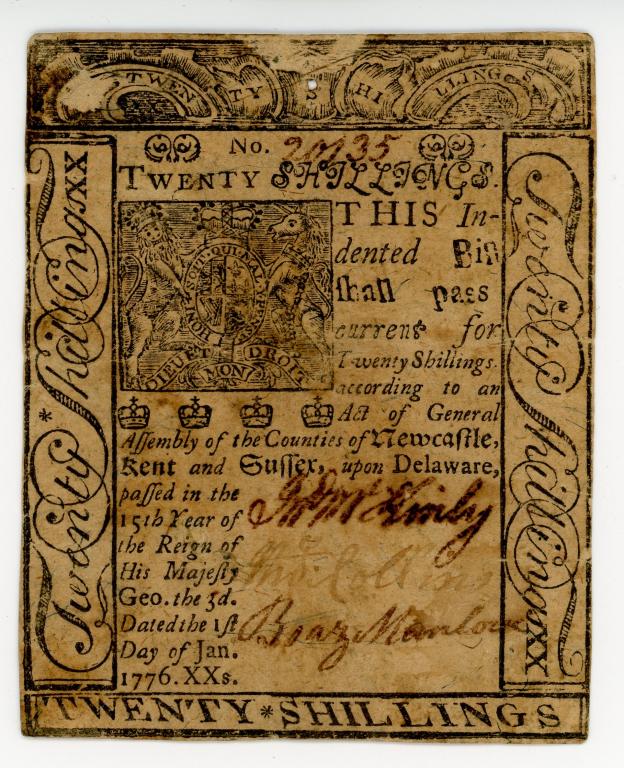 TWENTY SHILLINGS
No. 20735
TWENTY SHILLINGS.
THIS In-
dented Bill
shall pass
current for
Twenty Shillings.
according to an
Act of General
Assembly of the Counties of Newcastle,
Kent and Sussex, upon Delaware,
passed in the
15th Year of
the Reign of
His Majesty
Geo. the 3d.
Dated the 1st
Day of Jan.
1776. XXs.
HONI SOIT QUI MAL Y PENSE
DIEU ET MON DROIT
Jno McKinly
Thos. Collins
Boaz Manlove
Twenty Shillings XX
Twenty Shillings XX
TWENTY*SHILLINGS